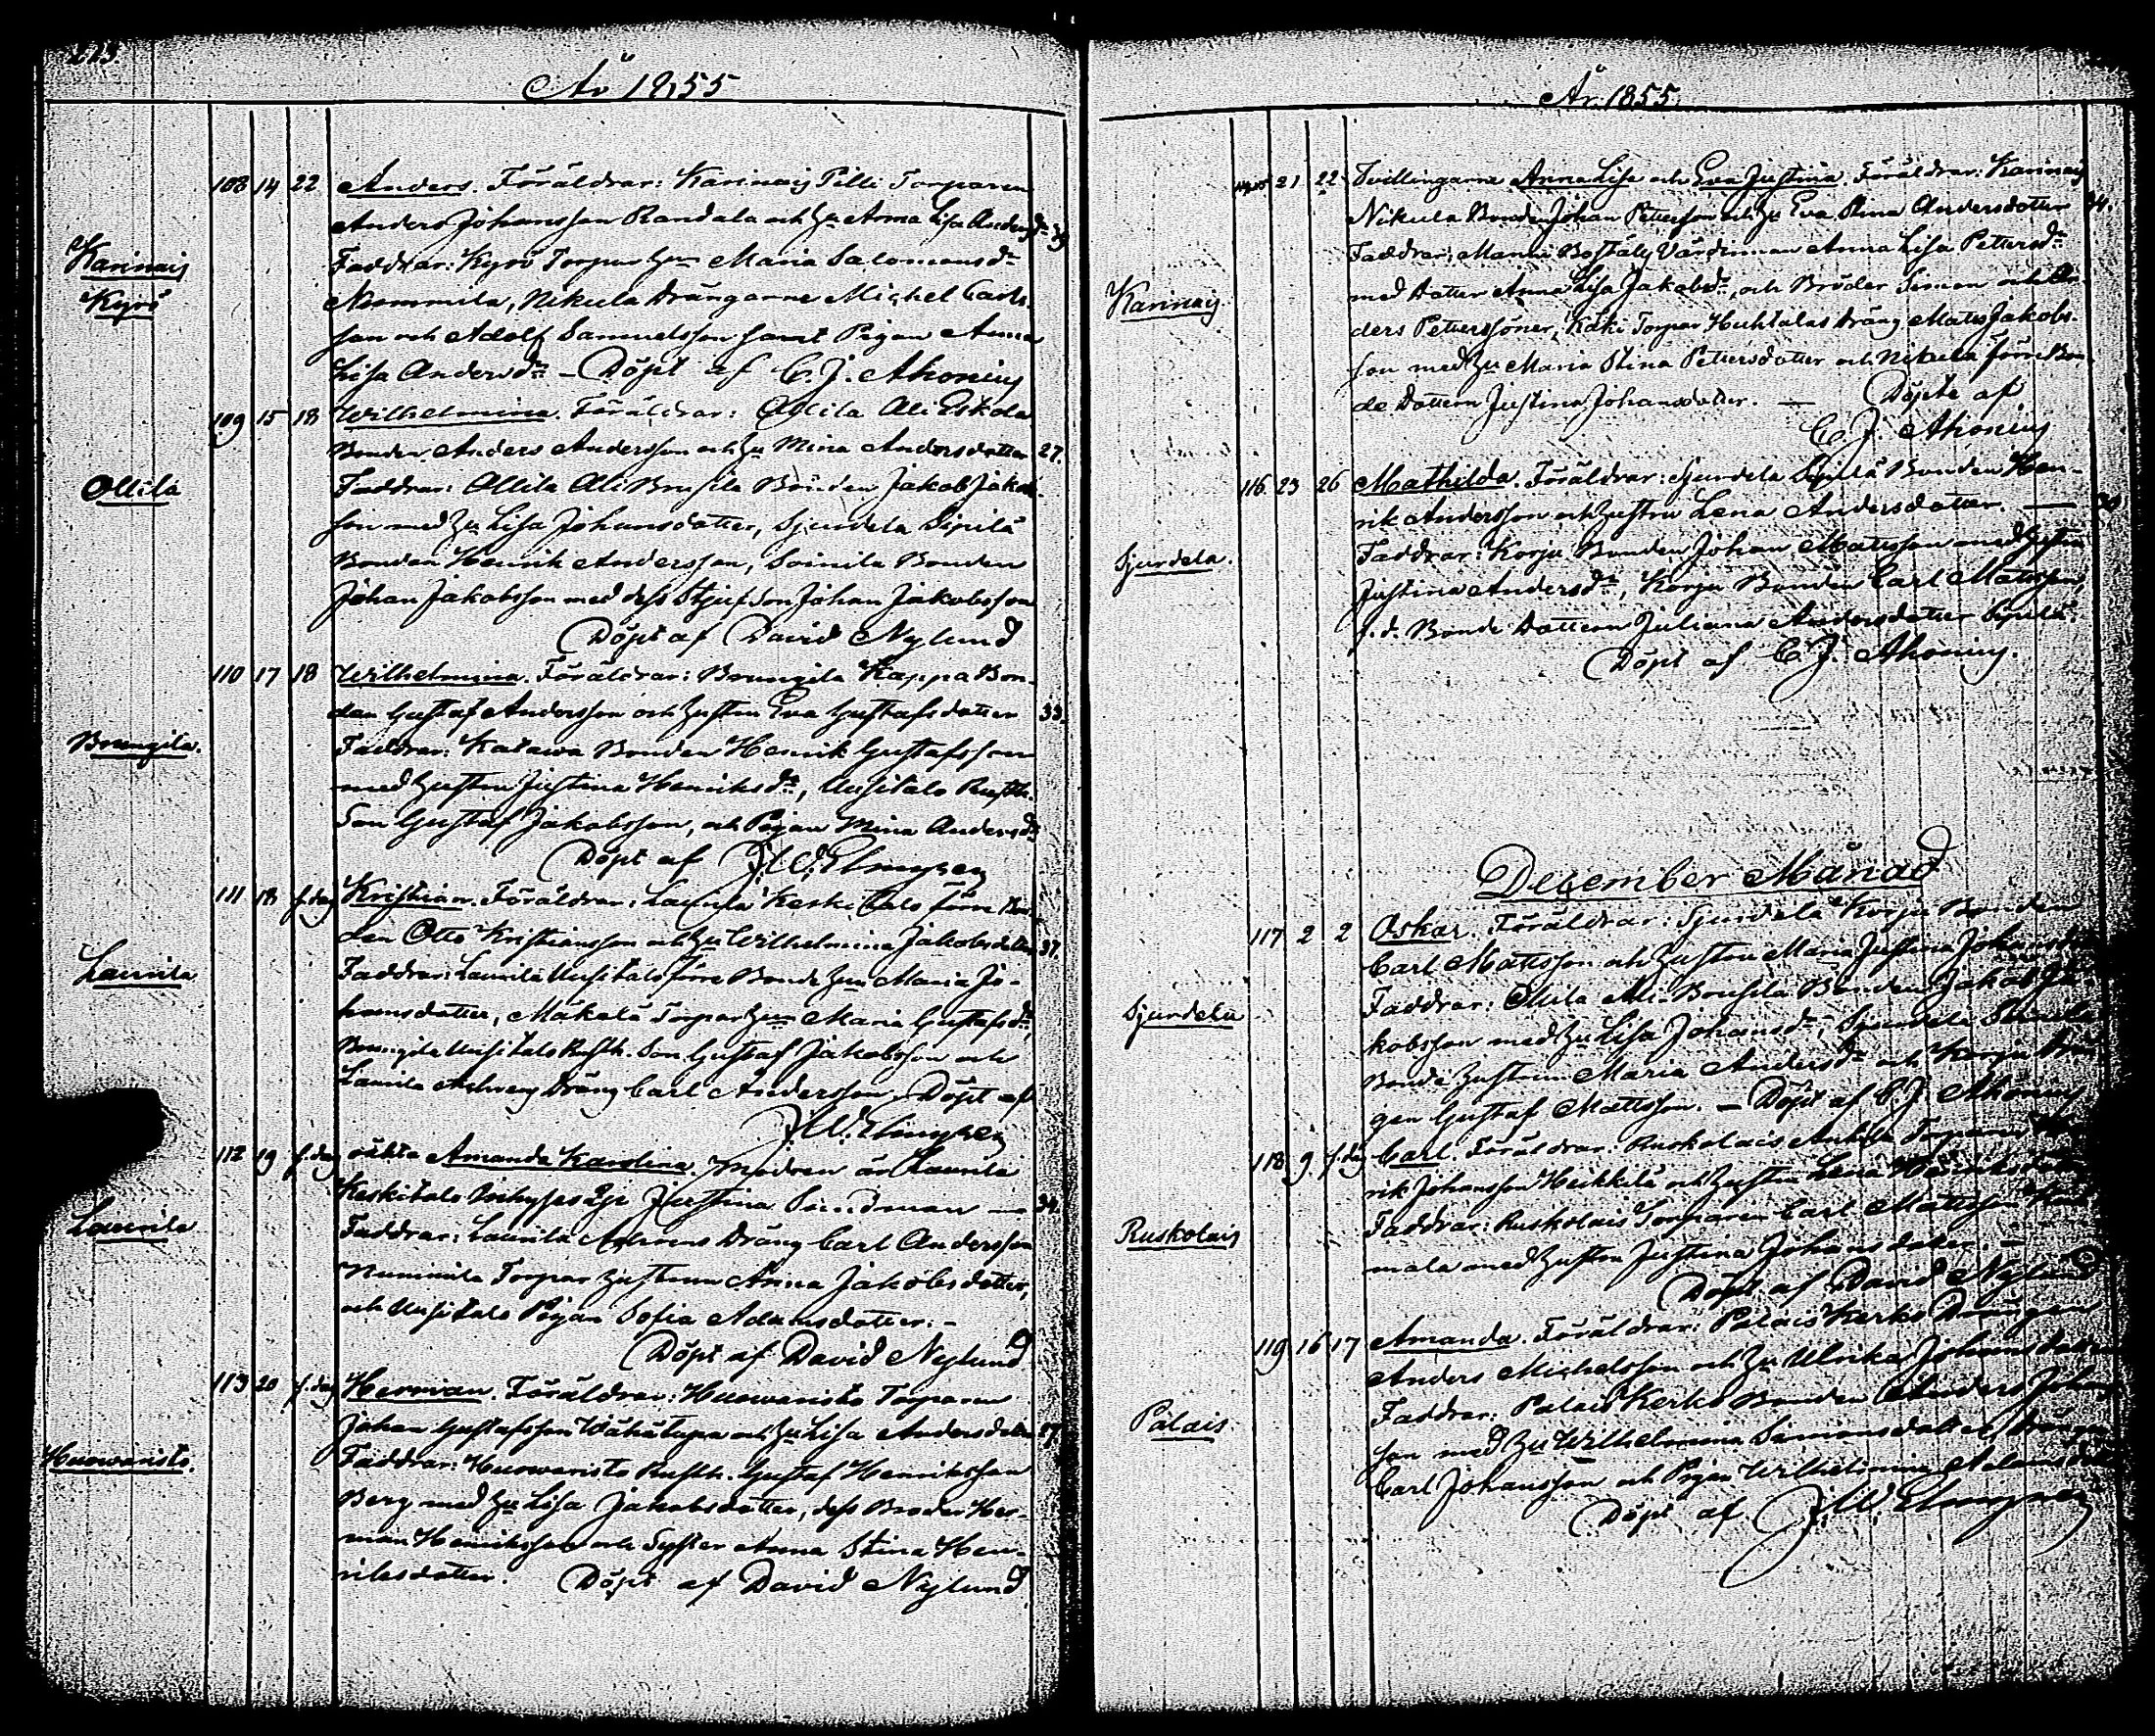 År 1855
108 14 22 Anders. Föräldrar: Karinais Pilli Torparen
Anders Johansson Randala och Hu Anna Lisa Andersdr
Karinais
Kyrö
Faddrar: Kyrö Torpar Hun Maria Salomonsdr
Nummila, Nikula Drängarne Michel Carls-
son och Adolf Samuelsson samt Pigan Anna
Lisa Andersdr – Döpt af C. J. Ahonius
109 15 18 Wilhelmina. Föräldrar: Ollila Ali Eskola
Bonden Anders Andersson och Hu Mina Andersdotter 27.
Ollila
Faddrar: Ollila Ali Brusila Bonden Jakob Jakob-
son med Hu Lisa Johansdotter, Sjurdela Sipilä
Bonden Henrik Andersson, Soinila Bonden
Johan Jakobsson med dess Stjufson Johan Jakobsson
Döpt af David Nylund
110 17 18 Wilhelmina. Föräldrar: Brungila Kappa Bon-
den Gustaf Andersson och Hustru Eva Gustafsdotter 33.
Brungila.
Faddrar: Katawa Bonden Henrik Gustafsson
med Hustru Justina Henriksdr, Uusitalo Rusth.
Son Gustaf Jakobsson, och Pigan Mina Andersdr
Döpt af J. W. Elmgren
111 18 f. dag Kristian. Föräldrar: Laurila Keskitalo förre Bon-
den Otto Kristiansson och Hu Wilhelmina Jakobsdotter 37.
Laurila
Faddrar: Laurila Uusitalo förre Bonde Hun Maria Jo-
hansdotter, Mäkelä Torpar Hun Maria Gustafsdr,
Brungila Uusitalo Rusth. Son Gustaf Jakobsson och
Laurila Dräng Carl Andersson. Döpt af
J. W. Elmgren
112 19 f. dag oäkta Amanda Karolina. Modren är Laurila
Keskitalo Inhyses Justina 34.
Laurila
Faddrar: Laurila Dräng Carl Andersson
Nummila Torpar Hustrun Anna Jakobsdotter,
och Uusitalo Pigan Sofia Adamsdotter. –
Döpt af David Nylund
113 20 f. dag Herman. Föräldrar: Huowaristo Torparen
Johan Gustafsson Wähätupa och Hu Lisa Andersdotter
Huowaristo.
Faddrar: Huowaristo Rusth. Gustaf Henriksson
Berg med Hu Lisa Jakobsdotter, dess Broder Her-
man Henriksson och Syster Anna Stina Hen-
riksdotter. Döpt af David Nylund
År 1855
21 22 Tvillingarne Anna Lisa och Eva Justina. Föräldrar: Karinais
Nikula Bonden Johan Pettersson och Hu Eva Stina Andersdotter
Karinais.
Faddrar: Boställs Värdinnan Anna Lisa Pettersdr
med Dotter Anna Lisa Jakobsdr, och Bröder Simon och An-
ders Petterssöner, Käki Torpar Huhtalas Dräng Matts Jakobs-
son med Hu Maria Stina Pettersdotter och Nikula förre Bon-
de Dottern Justina Johansdotter. — Döpte af
C. J. Ahonius
116 23 26 Mathilda. Föräldrar: Sjurdela Sipilä Bonden Hen-
rik Andersson och Hustru Lena Andersdotter. —
Sjurdela.
Faddrar: Korju Bonden Johan Mattsson med Hustru
Justina Andersdr, Korju Bonden Carl Mattsson,
f. d. Bonde Dottern Juliana Andersdotter Sipilä.
Döpt af C. J. Ahonius.
December Månad
117 2 2 Oskar. Föräldrar: Sjurdela Korju Bonden
Carl Mattsson och Hustru Maria Justina Johansdr
Sjurdela
Faddrar: Ollila Ali-Brusila Bonden Jakob Ja-
kobsson med Hu Lisa Johansdr, Sjurdela
Bonde Hustrun Maria Andersdr och Korju Drän-
gen Gustaf Mattsson. – Döpt af C. J. Ahonius
118 9 f. dag Carl. Föräldrar: Ruskolais Torparen Hen-
rik Johansson Heikkilä och Hustru Lena
Ruskolais
Faddrar: Ruskolais Torparen Carl Mattsson
mala med Hustru Justina Johansdotter. –
Döpt af David Nylund
119 16 17 Amanda. Föräldrar: Palais Kerko Drängen
Anders Michelsson och Hu Ulrika Johansdotter
Palais.
Faddrar: Palais Kerko Bonden Anders Johans-
son med Hu Wilhelmina Simonsdotter, Drängen
Carl Johansson och Pigan Wilhelmina
Döpt af J. W. Elmgren